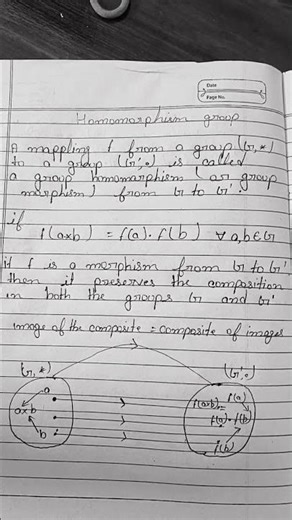 Date
Page No.
Homomorphism group
A mappling f from a group (G, *)
to a group (G', o) is called
a group homomorphism (or group
morphism) from G to G'.
if
f(a*b) = f(a)·f(b) ∀ a,b∈G
If f is a morphism from G to G'
then it preserves the composition
in both the groups G and G'
image of the composite = composite of images
(G, *) (G', o)
a
a*b
b
f(a*b)= f(a)
f(a)·f(b)
f(b)